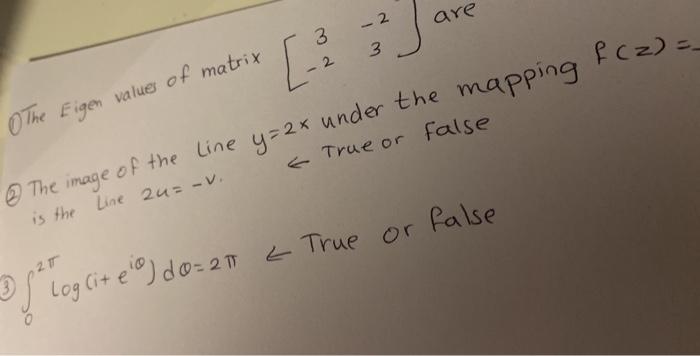 ① The Eigen values of matrix [ 3 -2
-2 3 ] are
② The image of the Line y=2x under the mapping f(z) =
is the Line 2u = -v. ← True or false
③ ∫₀^2π Log(i+e^iθ) dθ = 2π ← True or false